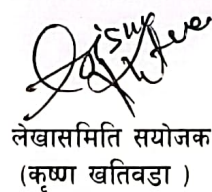 लेखासमिति सयोजक
(कृष्ण खतिवडा )